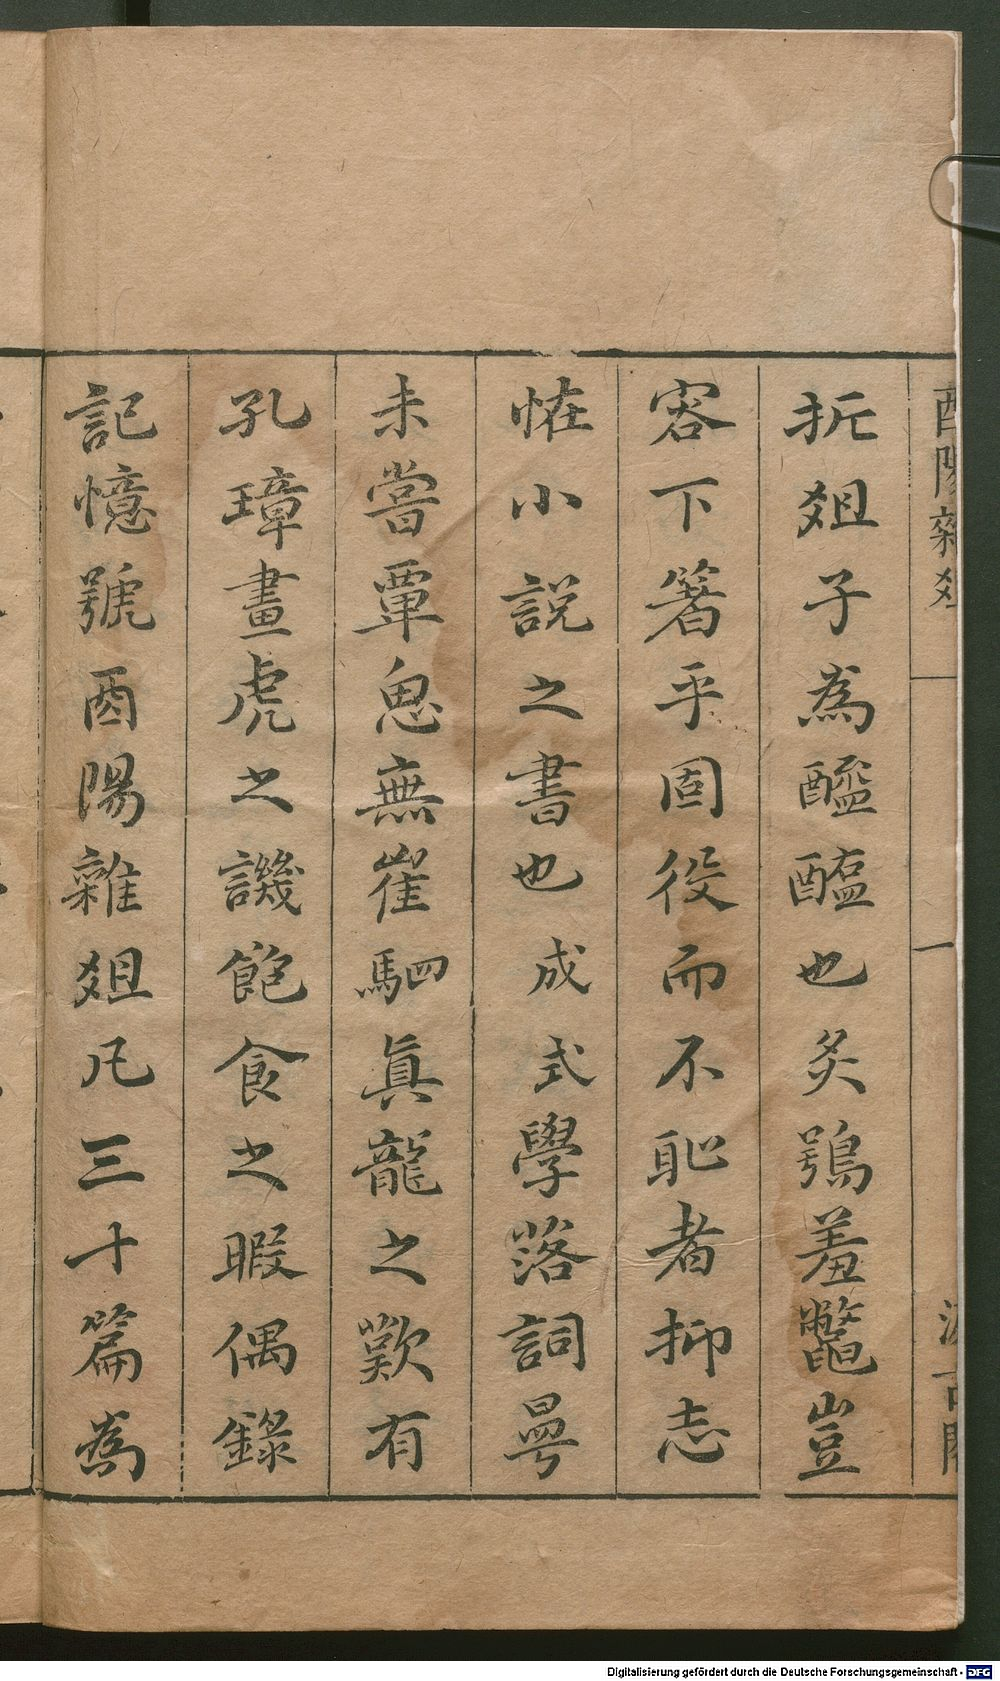 酉陽雜俎
一
汲古閣
折俎子為醯醢也炙鴞羞鼈豈
容下箸乎固役而不恥者抑志
怪小說之書也成式學落詞曼
未嘗覃思無崔駰真龍之歎有
孔璋畫虎之譏飽食之暇偶錄
記憶號酉陽雜俎凡三十篇為
Digitalisierung gefördert durch die Deutsche Forschungsgemeinschaft - DFG